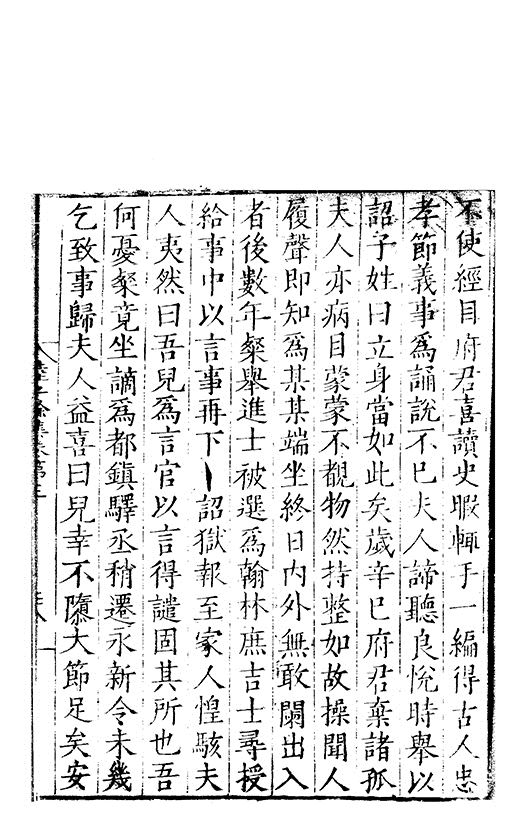 不使經目府君喜讀史暇輒手一編得古人忠
孝節義事爲誦說不已夫人諦聽良悅時舉以
詔子姓曰立身當如此矣歲辛巳府君棄諸孤
夫人亦病目蒙蒙不覩物然持整如故操聞人
履聲即知爲某某端坐終日內外無敢闌出入
者後數年粲舉進士被選爲翰林庶吉士尋授
給事中以言事再下詔獄報至家人惶駭夫
人夷然曰吾兒爲言官以言得譴固其所也吾
何憂粲竟坐謫爲都鎮驛丞稍遷永新令未幾
乞致事歸夫人益喜曰兒幸不隳大節足矣安